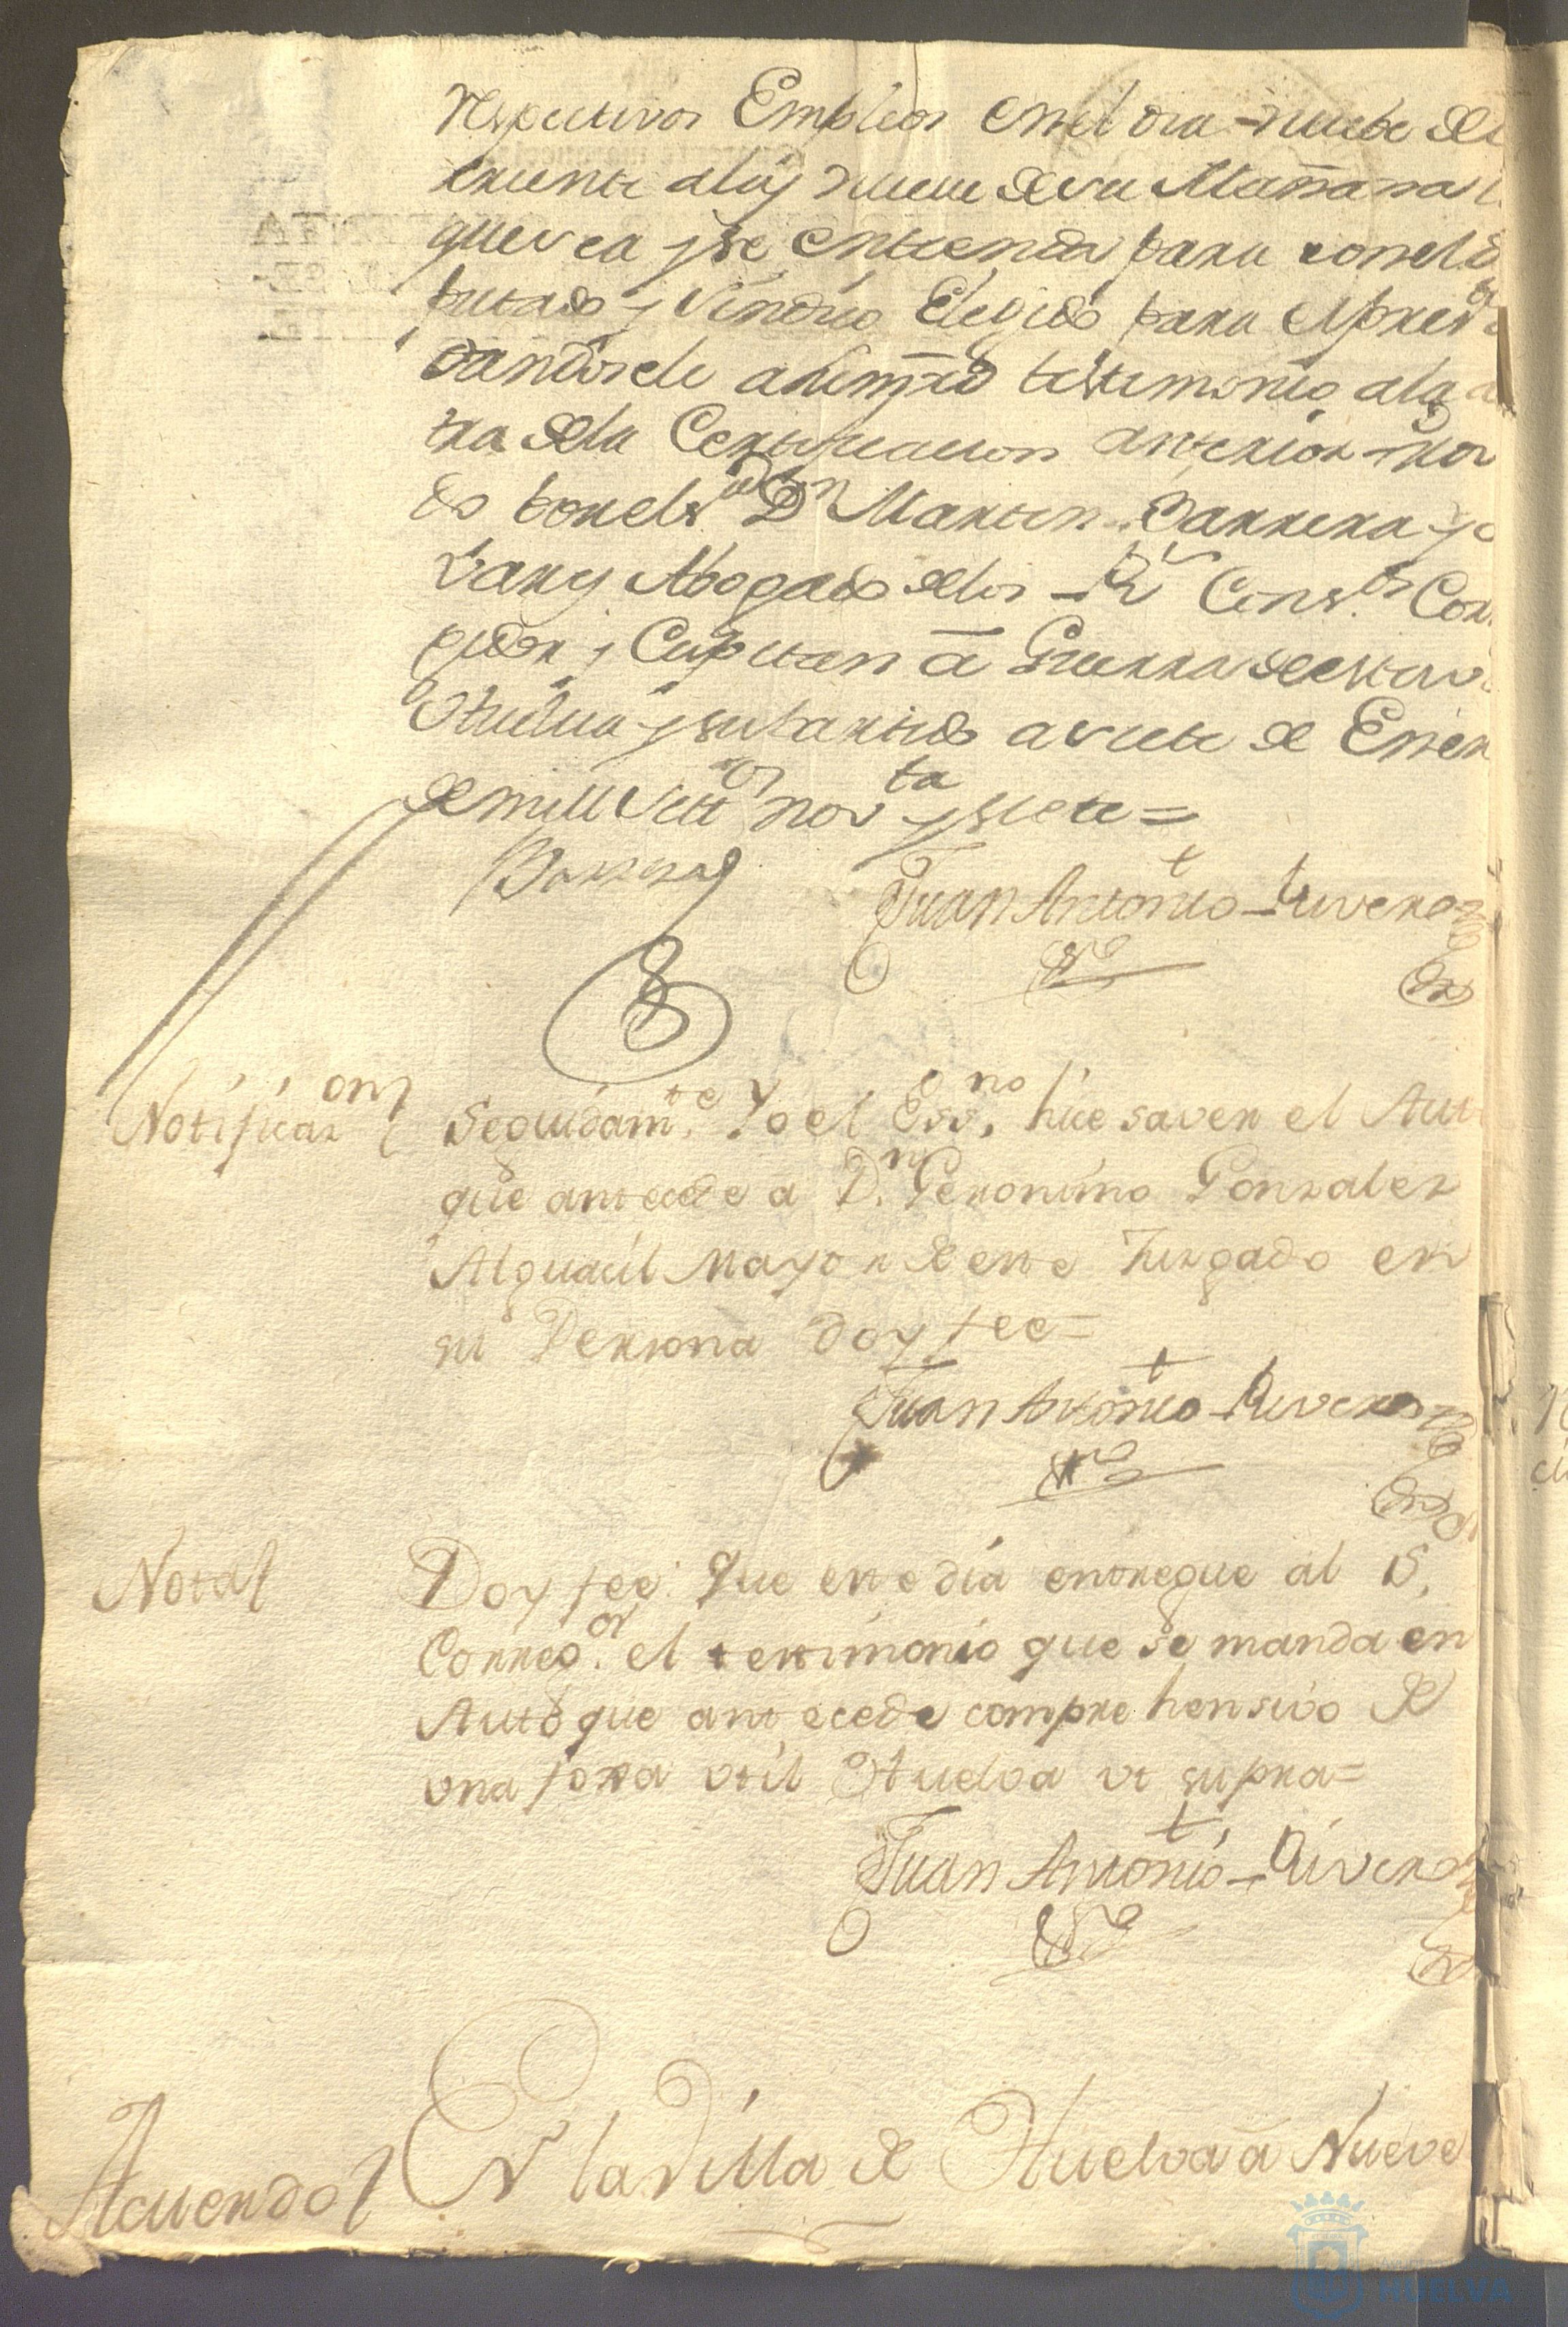 respectivos Empleos en el dia nuebe del
rriente alas nueve de su Mañana
que sea y se entienda para con el Di
putado y Sindico Elegido para
dandosele testimonio ala
tra dela Certificacion anterior
do por el Sor Dn Martin Barrera y
Abogado delos Rs Cons.os Cor
gidor y Capitan â Guerra de esta v
Huelva y su partido a siete de Ener
de mill Sett.os nov.ta y siete =
Barrera
Juan Antonio Rivero
Notificazon
Seguidam.te Yo el Ess.no hice saver el Aut
que antecede a D.n Geronimo Gonzalez
Alguacil Mayor de este Juzgado en
su Persona doy fee =
Juan Antonio Rivero
Nota
Doy fee: Que este dia entregue al S.
Correg.or el testimonio que se manda en
Auto que antecede comprehensivo de
una foxa util Huelva ut supra =
Juan Antonio Rivero
Acuerdo
En la Villa de Huelva â Nueve
HUELVA